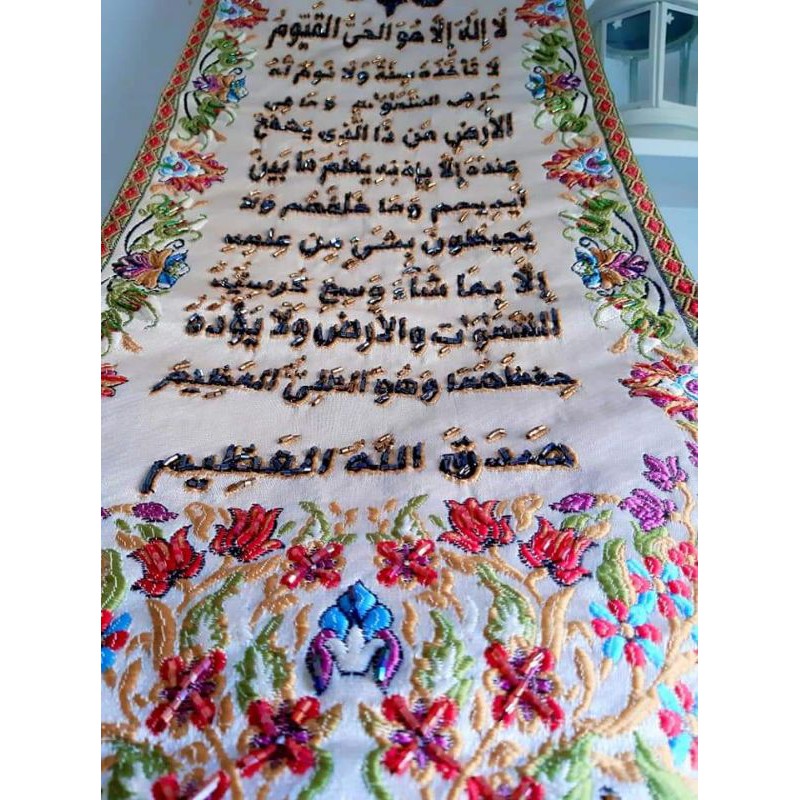 لَا إِلَهَ إِلَّا هُوَ الْحَيُّ الْقَيُّومُ
لَا تَأْخُذُهُ سِنَةٌ وَلَا نَوْمٌ لَهُ
مَا فِي السَّمَوَاتِ وَمَا فِي
الْأَرْضِ مَنْ ذَا الَّذِي يَشْفَعُ
عِنْدَهُ إِلَّا بِإِذْنِهِ يَعْلَمُ مَا بَيْنَ
أَيْدِيهِمْ وَمَا خَلْفَهُمْ وَلَا
يُحِيطُونَ بِشَيْءٍ مِنْ عِلْمِهِ
إِلَّا بِمَا شَاءَ وَسِعَ كُرْسِيُّهُ
السَّمَوَاتِ وَالْأَرْضَ وَلَا يَؤُدُهُ
حِفْظُهُمَا وَهُوَ الْعَلِيُّ الْعَظِيمُ
صَدَقَ اللَّهُ الْعَظِيمُ